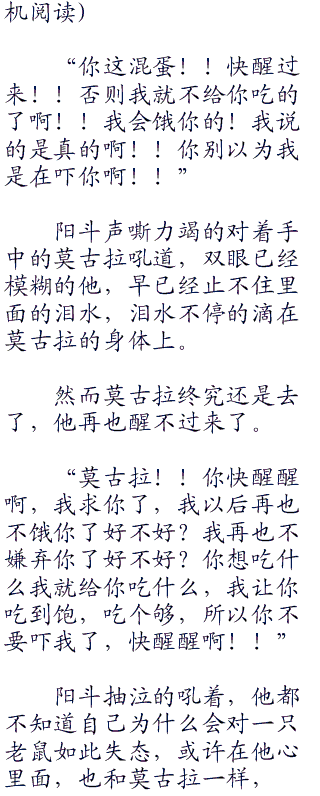 机阅读)
“你这混蛋！！快醒过
来！！否则我就不给你吃的
了啊！！我会饿你的！我说
的是真的啊！！你别以为我
是在吓你啊！！”
阳斗声嘶力竭的对着手
中的莫古拉吼道，双眼已经
模糊的他，早已经止不住里
面的泪水，泪水不停的滴在
莫古拉的身体上。
然而莫古拉终究还是去
了，他再也醒不过来了。
“莫古拉！！你快醒醒
啊，我求你了，我以后再也
不饿你了好不好？我再也不
嫌弃你了好不好？你想吃什
么我就给你吃什么，我让你
吃到饱，吃个够，所以你不
要吓我了，快醒醒啊！！”
阳斗抽泣的吼着，他都
不知道自己为什么会对一只
老鼠如此失态，或许在他心
里面，也和莫古拉一样，